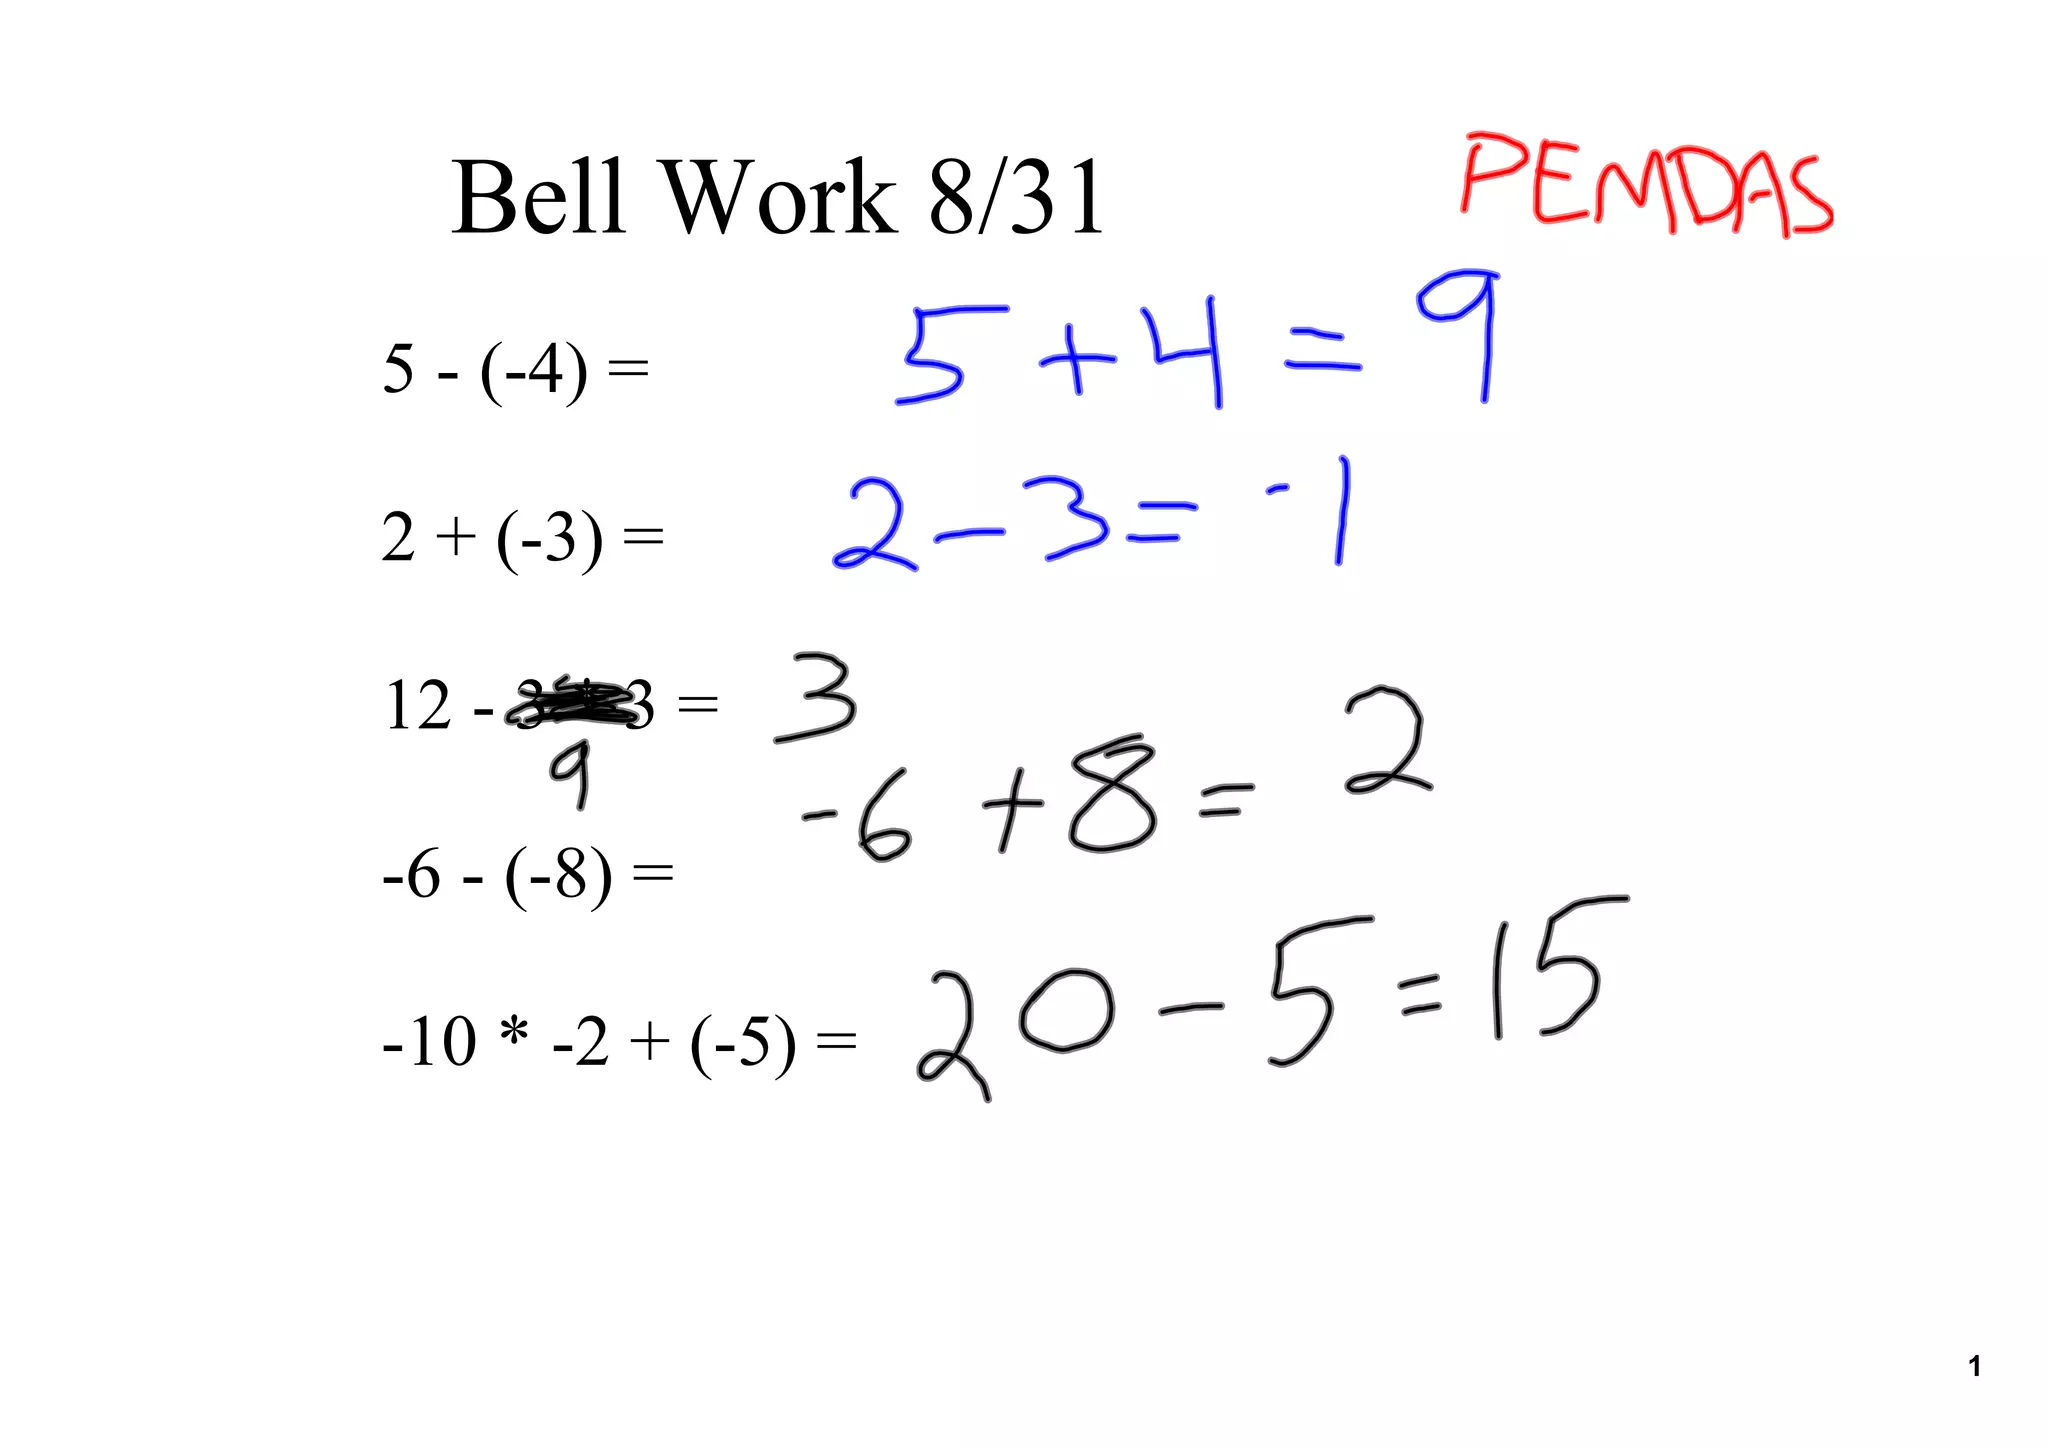 Bell Work 8/31
PEMDAS
5 - (-4) =
5 + 4 = 9
2 + (-3) =
2 - 3 = -1
12 - 3 * 3 =
3
9
-6 + 8 = 2
-6 - (-8) =
-10 * -2 + (-5) =
20 - 5 = 15
1